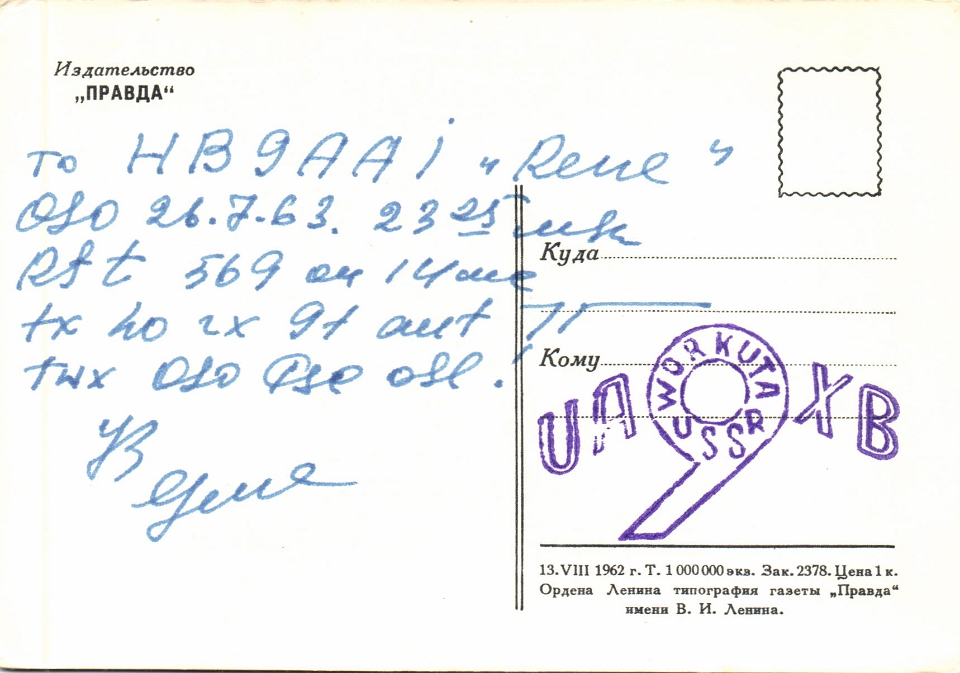 Издательство
„ПРАВДА“
to HB9AAI „Rene"
QSO 26.7.63. 23 25 msk
RSt 569 on 14 mc
tx ho rx 9t ant
tnx QSO Pse QSL.!
73
Куда
Кому
UA9XB
WORKUTA
USSR
13.VIII 1962 г. Т. 1 000 000 экв. Зак. 2378. Цена 1 к.
Ордена Ленина типография газеты „Правда“
имени В. И. Ленина.